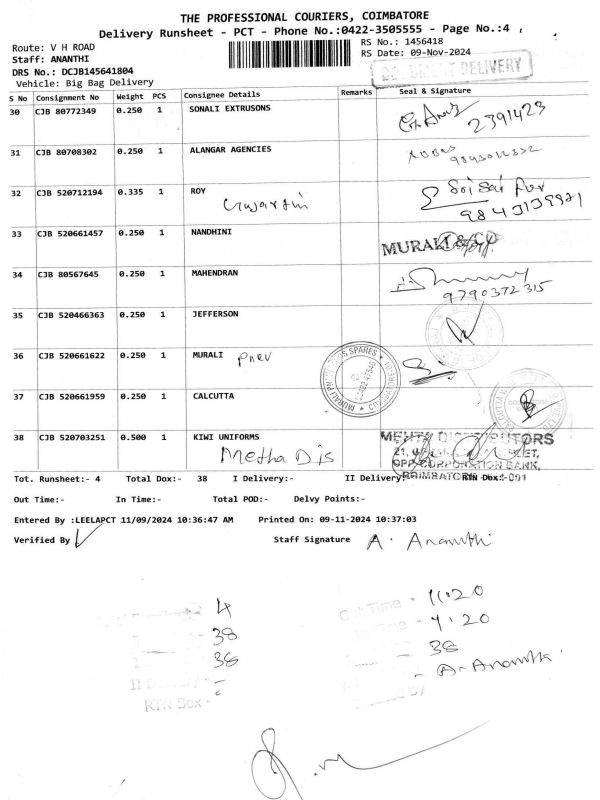 THE PROFESSIONAL COURIERS, COIMBATORE
Delivery Runsheet - PCT - Phone No.:0422-3505555 - Page No.:4
Route: V H ROAD
RS No.: 1456418
Staff: ANANTHI
RS Date: 09-Nov-2024
DRS No.: DCJB145641804
DELIVERY
Vehicle: Big Bag Delivery
S No Consignment No Weight PCS Consignee Details Remarks Seal & Signature
30 CJB 80772349 0.250 1 SONALI EXTRUSONS
2391423
31 CJB 80708302 0.250 1 ALANGAR AGENCIES
32 CJB 520712194 0.335 1 ROY
Sri Sai
33 CJB 520661457 0.250 1 NANDHINI
MURALI & CO
34 CJB 80567645 0.250 1 MAHENDRAN
9790372315
35 CJB 520466363 0.250 1 JEFFERSON
36 CJB 520661622 0.250 1 MURALI Pnev
37 CJB 520661959 0.250 1 CALCUTTA
38 CJB 520703251 0.500 1 KIWI UNIFORMS
Metha Dis
MEHTA DISTRIBUTORS
OPP. CORPORATION BANK,
Tot. Runsheet:- 4 Total Dox:- 38 I Delivery:- II Delivery:- RTN Dox:-
Out Time:- In Time:- Total POD:- Delvy Points:-
Entered By :LEELAPCT 11/09/2024 10:36:47 AM Printed On: 09-11-2024 10:37:03
Verified By Staff Signature A. Ananthi
4 Out Time - 11:20
38 4:20
38 38
II Delivery - A. Ananthi
RTN Dox -